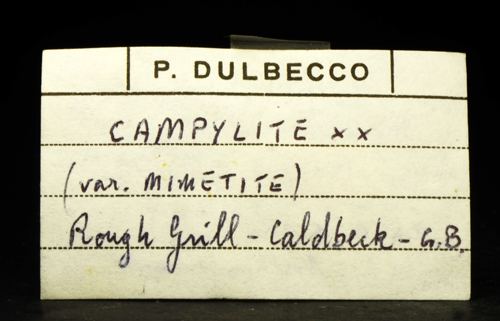 P. DULBECCO
CAMPYLITE xx
(var. MIMETITE)
Rough Grill - Caldbeck - G.B.